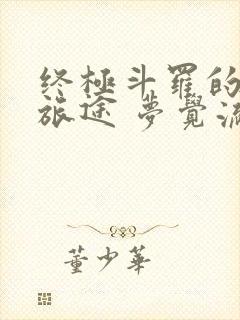 终极斗罗的
旅途 梦觉流
董少华